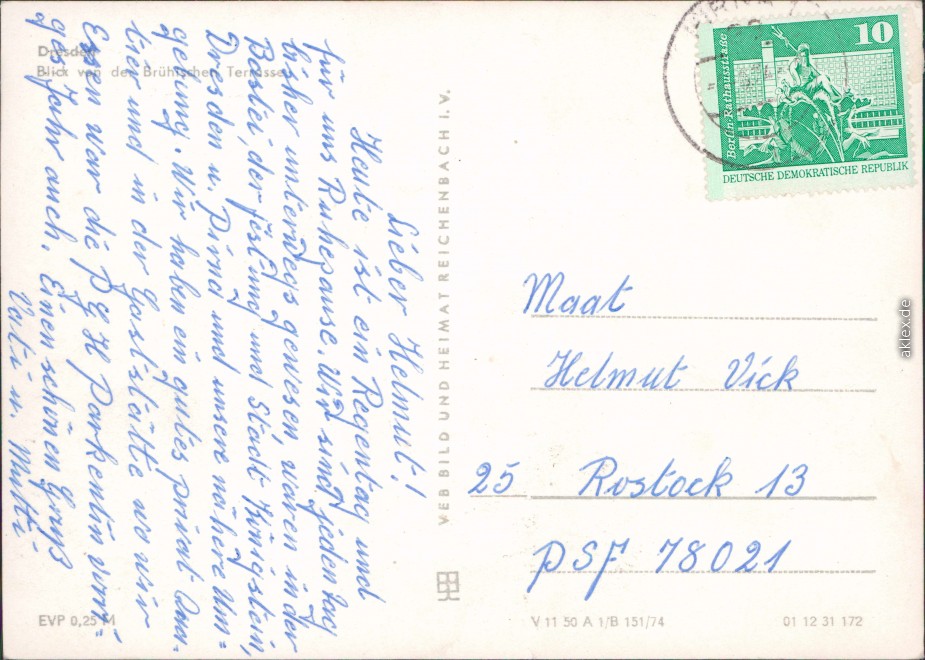 Dresden
Blick von der Brühlschen Terrasse
Lieber Helmut!
Heute ist ein Regentag und
für uns Ruhepause. Wir sind jeden Tag
bisher unterwegs gewesen waren in der
Bastei, der Festung und Stadt Königstein,
Dresden u. Pirna und unsere nähere Um=
gebung. Wir haben ein gutes privat Quar-
tier und in der Gaststätte wo wir
Essen war die PGH Parkentin vori=
ges Jahr auch. Einen schönen Gruß
Vati u. Mutti
VEB BILD UND HEIMAT REICHENBACH I. V.
10
Berlin-Rathausstraße
DEUTSCHE DEMOKRATISCHE REPUBLIK
Maat
Helmut Vick
25 Rostock 13
PSF 78021
EVP 0,25 M
V 11 50 A 1/B 151/74
01 12 31 172
aklex.de